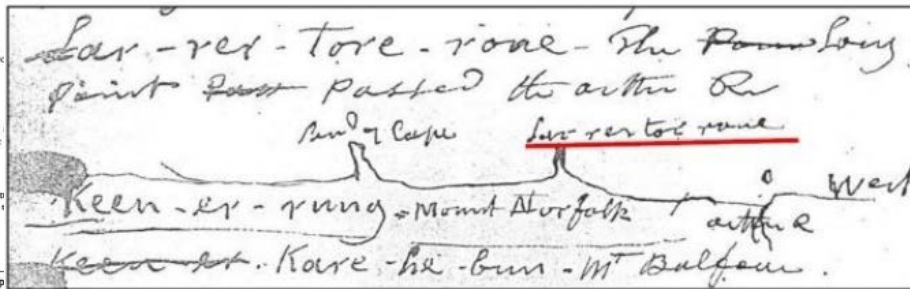 Lar-rer-Tore-rone - The Long
point Passed the arthur Rr
Cape Lar-rer tor rone
West
Keen-er-rung = Mount Norfolk
arthur R
Keen er. Kare-he-bun - Mt Balfour.